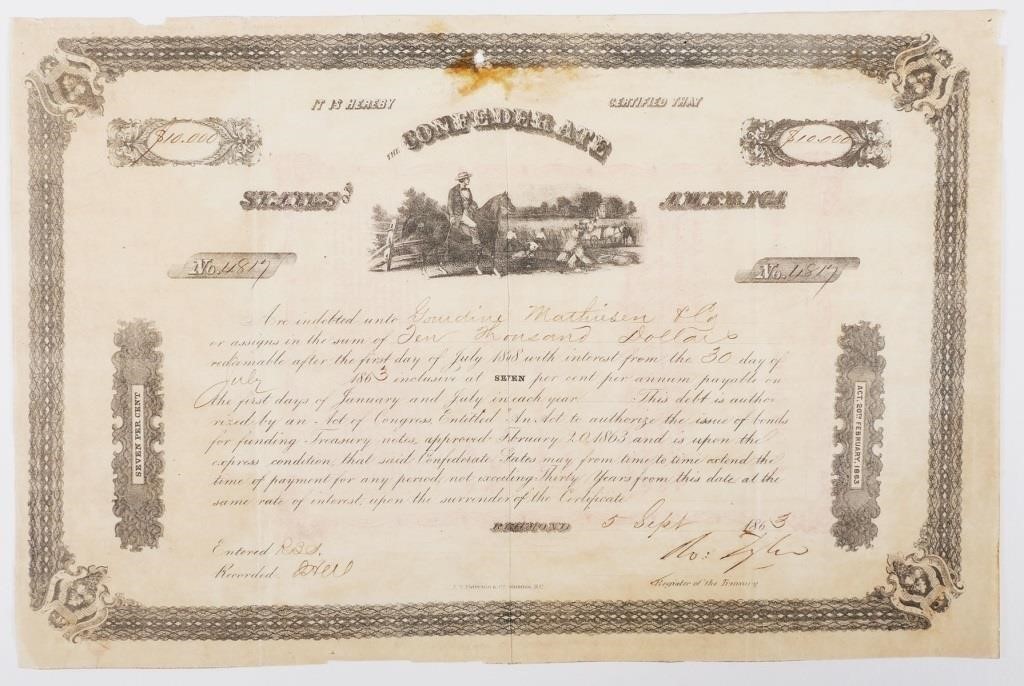 IT IS HEREBY CERTIFIED THAT
$10.000 $10.000
THE CONFEDERATE
STATES OF AMERICA
No. 4817 No. 4817
Are indebted unto Gourdine Mathiesen & Co
or assigns in the sum of Ten Thousand Dollars
redeemable after the first day of July 1868 with interest from the 30 day of
July 1863 inclusive at SEVEN per cent per annum payable on
the first days of January and July in each year. This debt is author
rized by an Act of Congress, Entitled "An Act to authorize the issue of bonds
for funding Treasury notes, approved February 20, 1863 and is upon the
express condition, that said Confederate States may from time to time extend the
time of payment for any period, not exceeding Thirty Years from this date at the
same rate of interest, upon the surrender of the Certificate
SEVEN PER CENT
ACT, 20TH FEBRUARY, 1863
RICHMOND 5 Sept 1863
Entered
Recorded
Ro: Tyler
Register of the Treasury